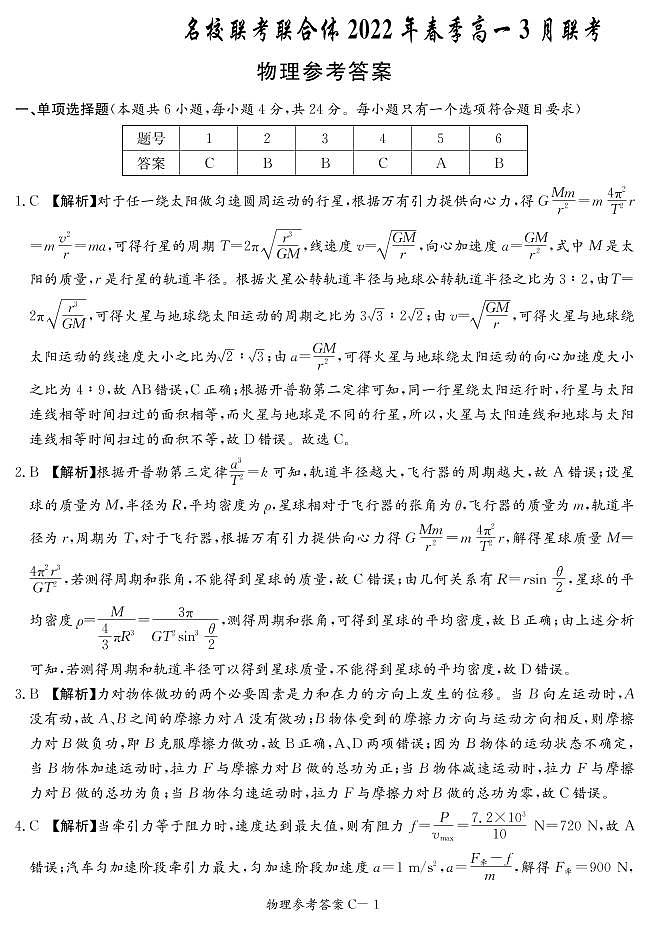 名校联考联合体2022年春季高一3月联考
物理参考答案
一、单项选择题(本题共6小题,每小题4分,共24分。每小题只有一个选项符合题目要求)
题号 1 2 3 4 5 6
答案 C B B C A B
1.C 【解析】对于任一绕太阳做匀速圆周运动的行星,根据万有引力提供向心力,得 G\frac{Mm}{r^2}=m\frac{4π^2}{T^2}r
=m\frac{v^2}{r}=ma,可得行星的周期 T=2π\sqrt{\frac{r^3}{GM}},线速度 v=\sqrt{\frac{GM}{r}},向心加速度 a=\frac{GM}{r^2},式中 M 是太
阳的质量,r 是行星的轨道半径。根据火星公转轨道半径与地球公转轨道半径之比为 3∶2,由T=
2π\sqrt{\frac{r^3}{GM}},可得火星与地球绕太阳运动的周期之比为 3√3∶2√2;由 v=\sqrt{\frac{GM}{r}},可得火星与地球绕
太阳运动的线速度大小之比为√2∶√3;由 a=\frac{GM}{r^2},可得火星与地球绕太阳运动的向心加速度大小
之比为 4∶9,故 AB错误,C正确;根据开普勒第二定律可知,同一行星绕太阳运行时,行星与太阳
连线相等时间扫过的面积相等,而火星与地球是不同的行星,所以,火星与太阳连线和地球与太阳
连线相等时间扫过的面积不等,故 D 错误。故选 C。
2.B 【解析】根据开普勒第三定律\frac{a^3}{T^2}=k 可知,轨道半径越大,飞行器的周期越大,故 A 错误;设星
球的质量为 M,半径为 R,平均密度为 ρ,星球相对于飞行器的张角为 θ,飞行器的质量为 m,轨道半
径为 r,周期为 T,对于飞行器,根据万有引力提供向心力得 G\frac{Mm}{r^2}=m\frac{4π^2}{T^2}r,解得星球质量 M=
\frac{4π^2r^3}{GT^2},若测得周期和张角,不能得到星球的质量,故 C 错误;由几何关系有 R=rsin\frac{θ}{2},星球的平
均密度 ρ=\frac{M}{\frac{4}{3}πR^3}=\frac{3π}{GT^2sin^3\frac{θ}{2}},测得周期和张角,可得到星球的平均密度,故 B 正确;由上述分析
可知,若测得周期和轨道半径可以得到星球质量,不能得到星球的平均密度,故 D 错误。
3.B 【解析】力对物体做功的两个必要因素是力和在力的方向上发生的位移。当 B 向左运动时,A
没有动,故 A、B 之间的摩擦力对 A 没有做功;B 物体受到的摩擦力方向与运动方向相反,则摩擦
力对 B 做负功,即 B 克服摩擦力做功,故 B 正确,A、D 两项错误;因为 B 物体的运动状态不确定,
当 B 物体加速运动时,拉力 F 与摩擦力对 B 做的总功为正;当 B 物体减速运动时,拉力 F 与摩擦
力对 B 做的总功为负;当 B 物体匀速运动时,拉力 F 与摩擦力对 B 做的总功为零,故 C 错误。
4.C 【解析】当牵引力等于阻力时,速度达到最大值,则有阻力 f=\frac{P}{v_{max}}=\frac{7.2×10^3}{10} N=720 N,故 A
错误;汽车匀加速阶段牵引力最大,匀加速阶段加速度 a=1 m/s^2,a=\frac{F_牵-f}{m},解得 F_牵=900 N,
物理参考答案C-1